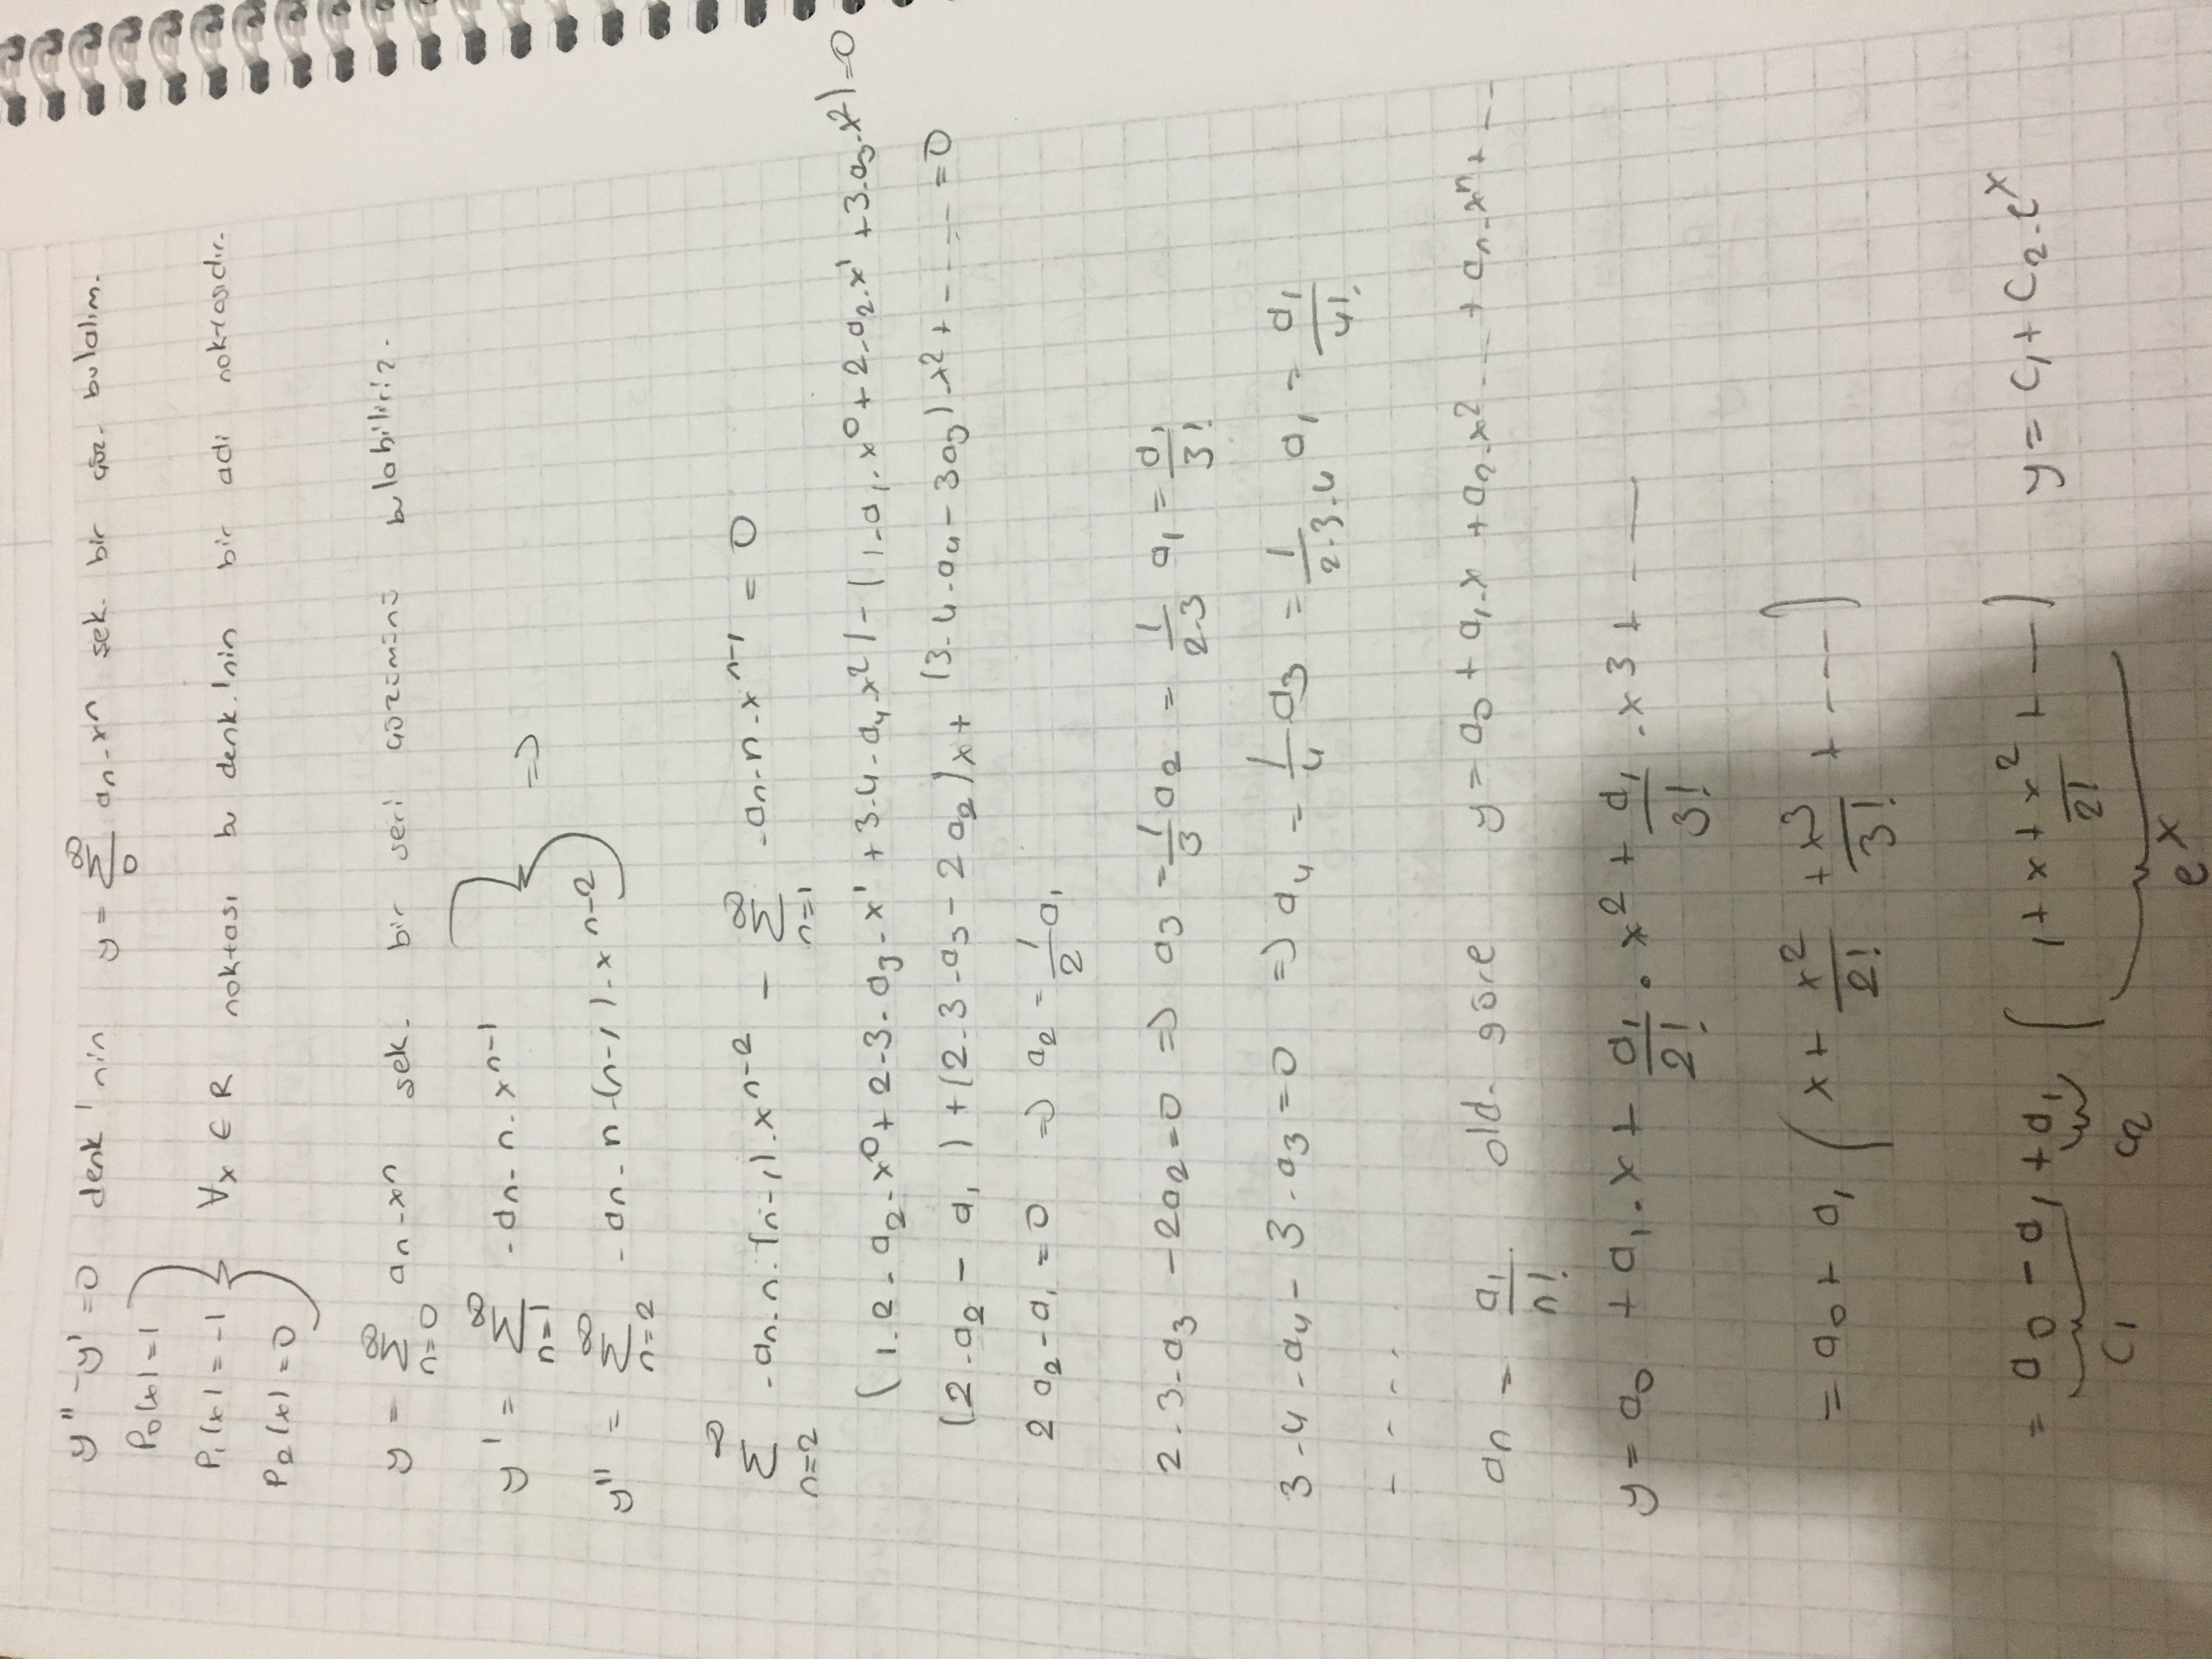 y'' - y' = 0 denk'nin y = ∑₀^∞ aₙ.xⁿ şek. bir çöz. bulalım.
P₀(x) = 1
P₁(x) = -1 } ∀x ∈ R noktası bu denk.'nin bir adi noktasıdır.
P₂(x) = 0
y = ∑_{n=0}^∞ aₙ.xⁿ şek. bir seri çözümünü bulabiliriz.
y' = ∑_{n=1}^∞ .aₙ.n.x^{n-1}
} =>
y'' = ∑_{n=2}^∞ .aₙ.n.(n-1).x^{n-2}
∑_{n=2}^∞ .aₙ.n.(n-1).x^{n-2} - ∑_{n=1}^∞ .aₙ.n.x^{n-1} = 0
(1.2.a₂.x⁰ + 2.3.a₃.x¹ + 3.4.a₄.x²) - (1.a₁.x⁰ + 2.a₂.x¹ + 3.a₃.x²) = 0
(2.a₂ - a₁) + (2.3.a₃ - 2a₂)x + (3.4.a₄ - 3a₃).x² + ..... = 0
2a₂ - a₁ = 0 => a₂ = 1/2 a₁
2.3.a₃ - 2a₂ = 0 => a₃ = 1/3 a₂ = 1/2.3 a₁ = a₁/3!
3.4.a₄ - 3.a₃ = 0 => a₄ = 1/4 a₃ = 1/2.3.4 a₁ = a₁/4!
.....
aₙ = a₁/n! old. göre y = a₀ + a₁.x + a₂.x² ... + aₙ.xⁿ + ...
y = a₀ + a₁.x + a₁/2! . x² + a₁/3! .x³ + ...
= a₀ + a₁ (x + x²/2! + x³/3! + ...)
= a₀ - a₁ + a₁ (1 + x + x²/2! + ...) y = c₁ + c₂.eˣ
c₁ c₂ eˣ